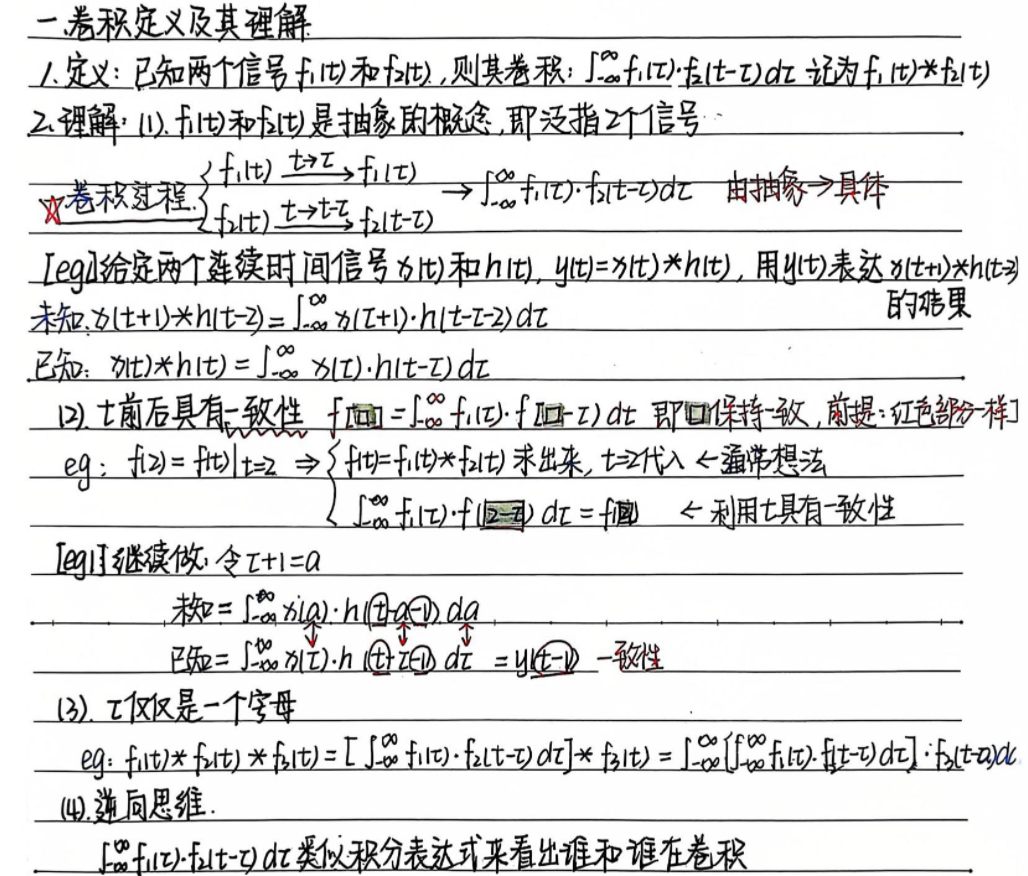 一.卷积定义及其理解
1.定义：已知两个信号f₁(t)和f₂(t),则其卷积：∫_{-∞}^{∞}f₁(τ)·f₂(t-τ)dτ 记为f₁(t)*f₂(t)
2.理解：(1).f₁(t)和f₂(t)是抽象的概念,即泛指2个信号
☆卷积过程.{f₁(t) t→τ→ f₁(τ)
f₂(t) t→t-τ→ f₂(t-τ) → ∫_{-∞}^{∞}f₁(τ)·f₂(t-τ)dτ 由抽象→具体
[eg1]给定两个连续时间信号x(t)和h(t), y(t)=x(t)*h(t), 用y(t)表达x(t+1)*h(t-2)
的结果
未知.x(t+1)*h(t-2)=∫_{-∞}^{∞}x(τ+1)·h(t-τ-2)dτ
已知：x(t)*h(t)=∫_{-∞}^{∞}x(τ)·h(t-τ)dτ
(2).t前后具有一致性 f[口]=∫_{-∞}^{∞}f₁(τ)·f[口-τ)dτ 即口保持一致,[前提:红色部分一样]
eg：f(2)=f(t)|t=2 ⇒ {f(t)=f₁(t)*f₂(t) 求出来, t=2代入 ← 通常想法
∫_{-∞}^{∞}f₁(τ)·f(2-τ)dτ=f(2) ← 利用t具有一致性
[eg1]继续做：令τ+1=a
未知=∫_{-∞}^{∞}x(a)·h(t-a-1)da
已知=∫_{-∞}^{∞}x(τ)·h(t-τ-1)dτ =y(t-1) 一致性
(3).τ仅仅是一个字母
eg：f₁(t)*f₂(t)*f₃(t)=[∫_{-∞}^{∞}f₁(τ)·f₂(t-τ)dτ]*f₃(t)=∫_{-∞}^{∞}[∫_{-∞}^{∞}f₁(τ)·f₂(t-τ)dτ]·f₃(t-a)da
(4).逆向思维.
∫_{-∞}^{∞}f₁(τ)·f₂(t-τ)dτ类似积分表达式来看出谁和谁在卷积